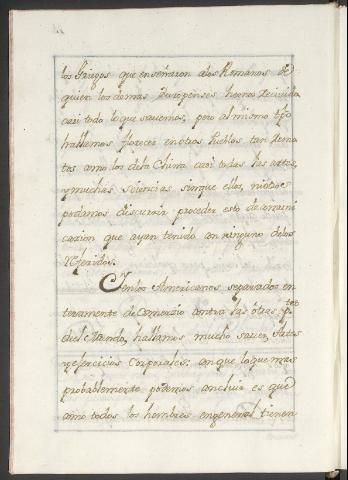 los Griegos que enseñaron alos Romanos de
quien los demas Europenses hemos recivido
casi todo loque savemos, pero al mismo tpo
hallamos florecer en otros Pueblos tan remo
tos como los dela China casi todas las artes,
y muchas sciencias sinque ellos, ni otros
podamos discurrir proceder esto de comuni
cazion que ayan tenido con ninguno delos
referidos.
Enlos Americanos separados en
teramente de Comerzio contra las otras ptes
del Mundo, hallamos mucho saver, Artes
y ejercicios Corporales: conque loque mas
probablemente podemos concluir es que
como todos los hombres engeneral tienen